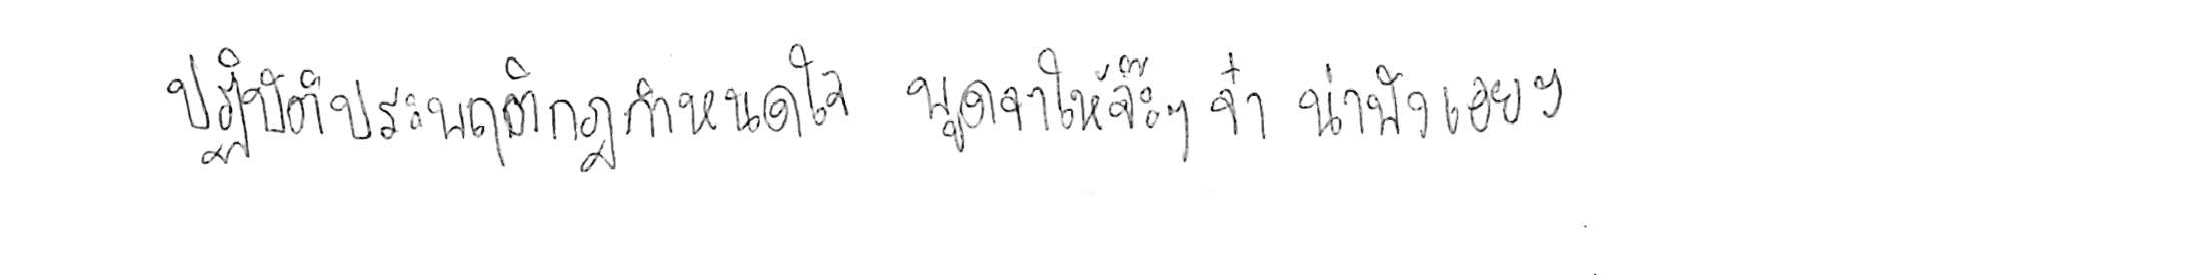 ปฏิบัติประพฤติกฎกำหนดใจ พูดจาให้จ๊ะๆ จ๋า น่าฟังเอยฯ